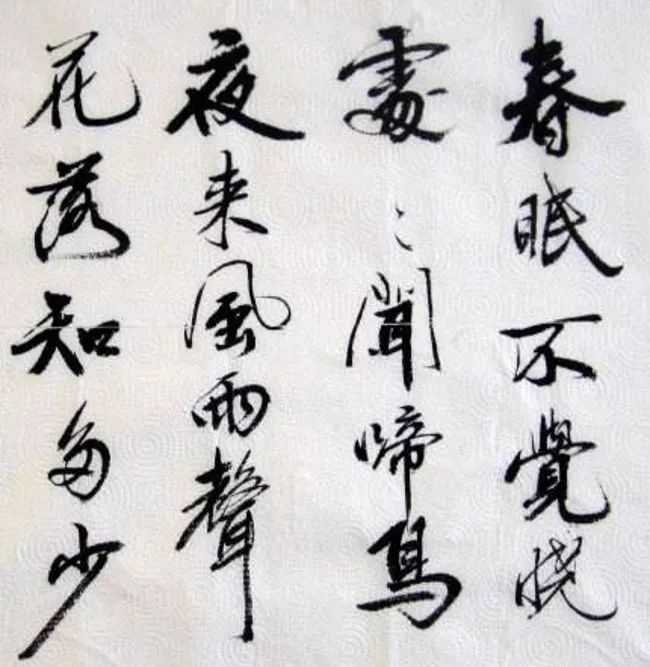 春眠不覺曉
處〻聞啼鳥
夜来風雨聲
花落知多少